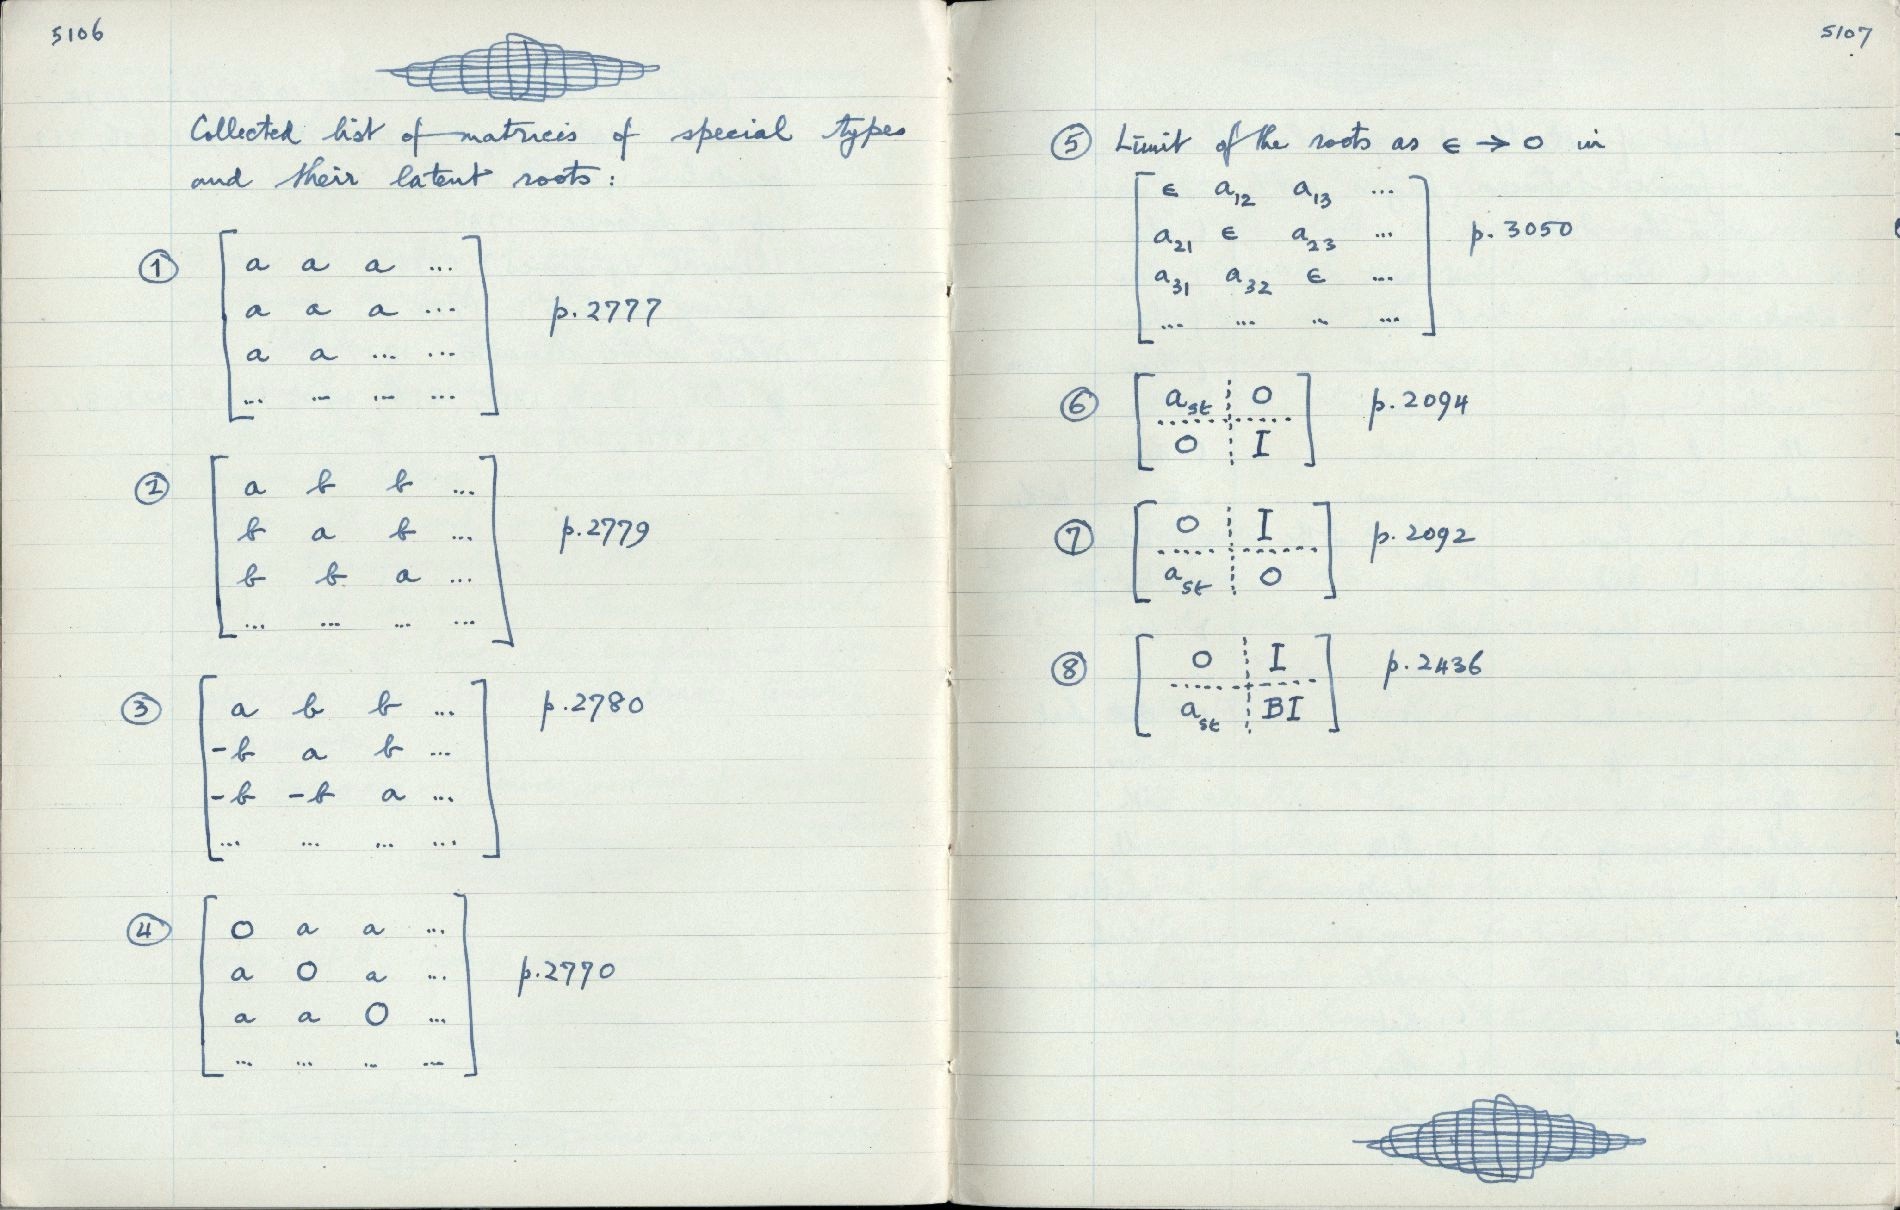 5106
Collected list of matrices of special types
and their latent roots:
① [ a a a ...
a a a ...
a a ... ...
... ... ... ... ] p.2777
② [ a b b ...
b a b ...
b b a ...
... ... ... ... ] p.2779
③ [ a b b ...
-b a b ...
-b -b a ...
... ... ... ... ] p.2780
④ [ 0 a a ...
a 0 a ...
a a 0 ...
... ... .. ... ] p.2770
5107
⑤ Limit of the roots as ε → 0 in
[ ε a₁₂ a₁₃ ...
a₂₁ ε a₂₃ ...
a₃₁ a₃₂ ε ...
... ... .. ... ] p. 3050
⑥ [ a_st 0
0 I ] p.2094
⑦ [ 0 I
a_st 0 ] p.2092
⑧ [ 0 I
a_st BI ] p.2436